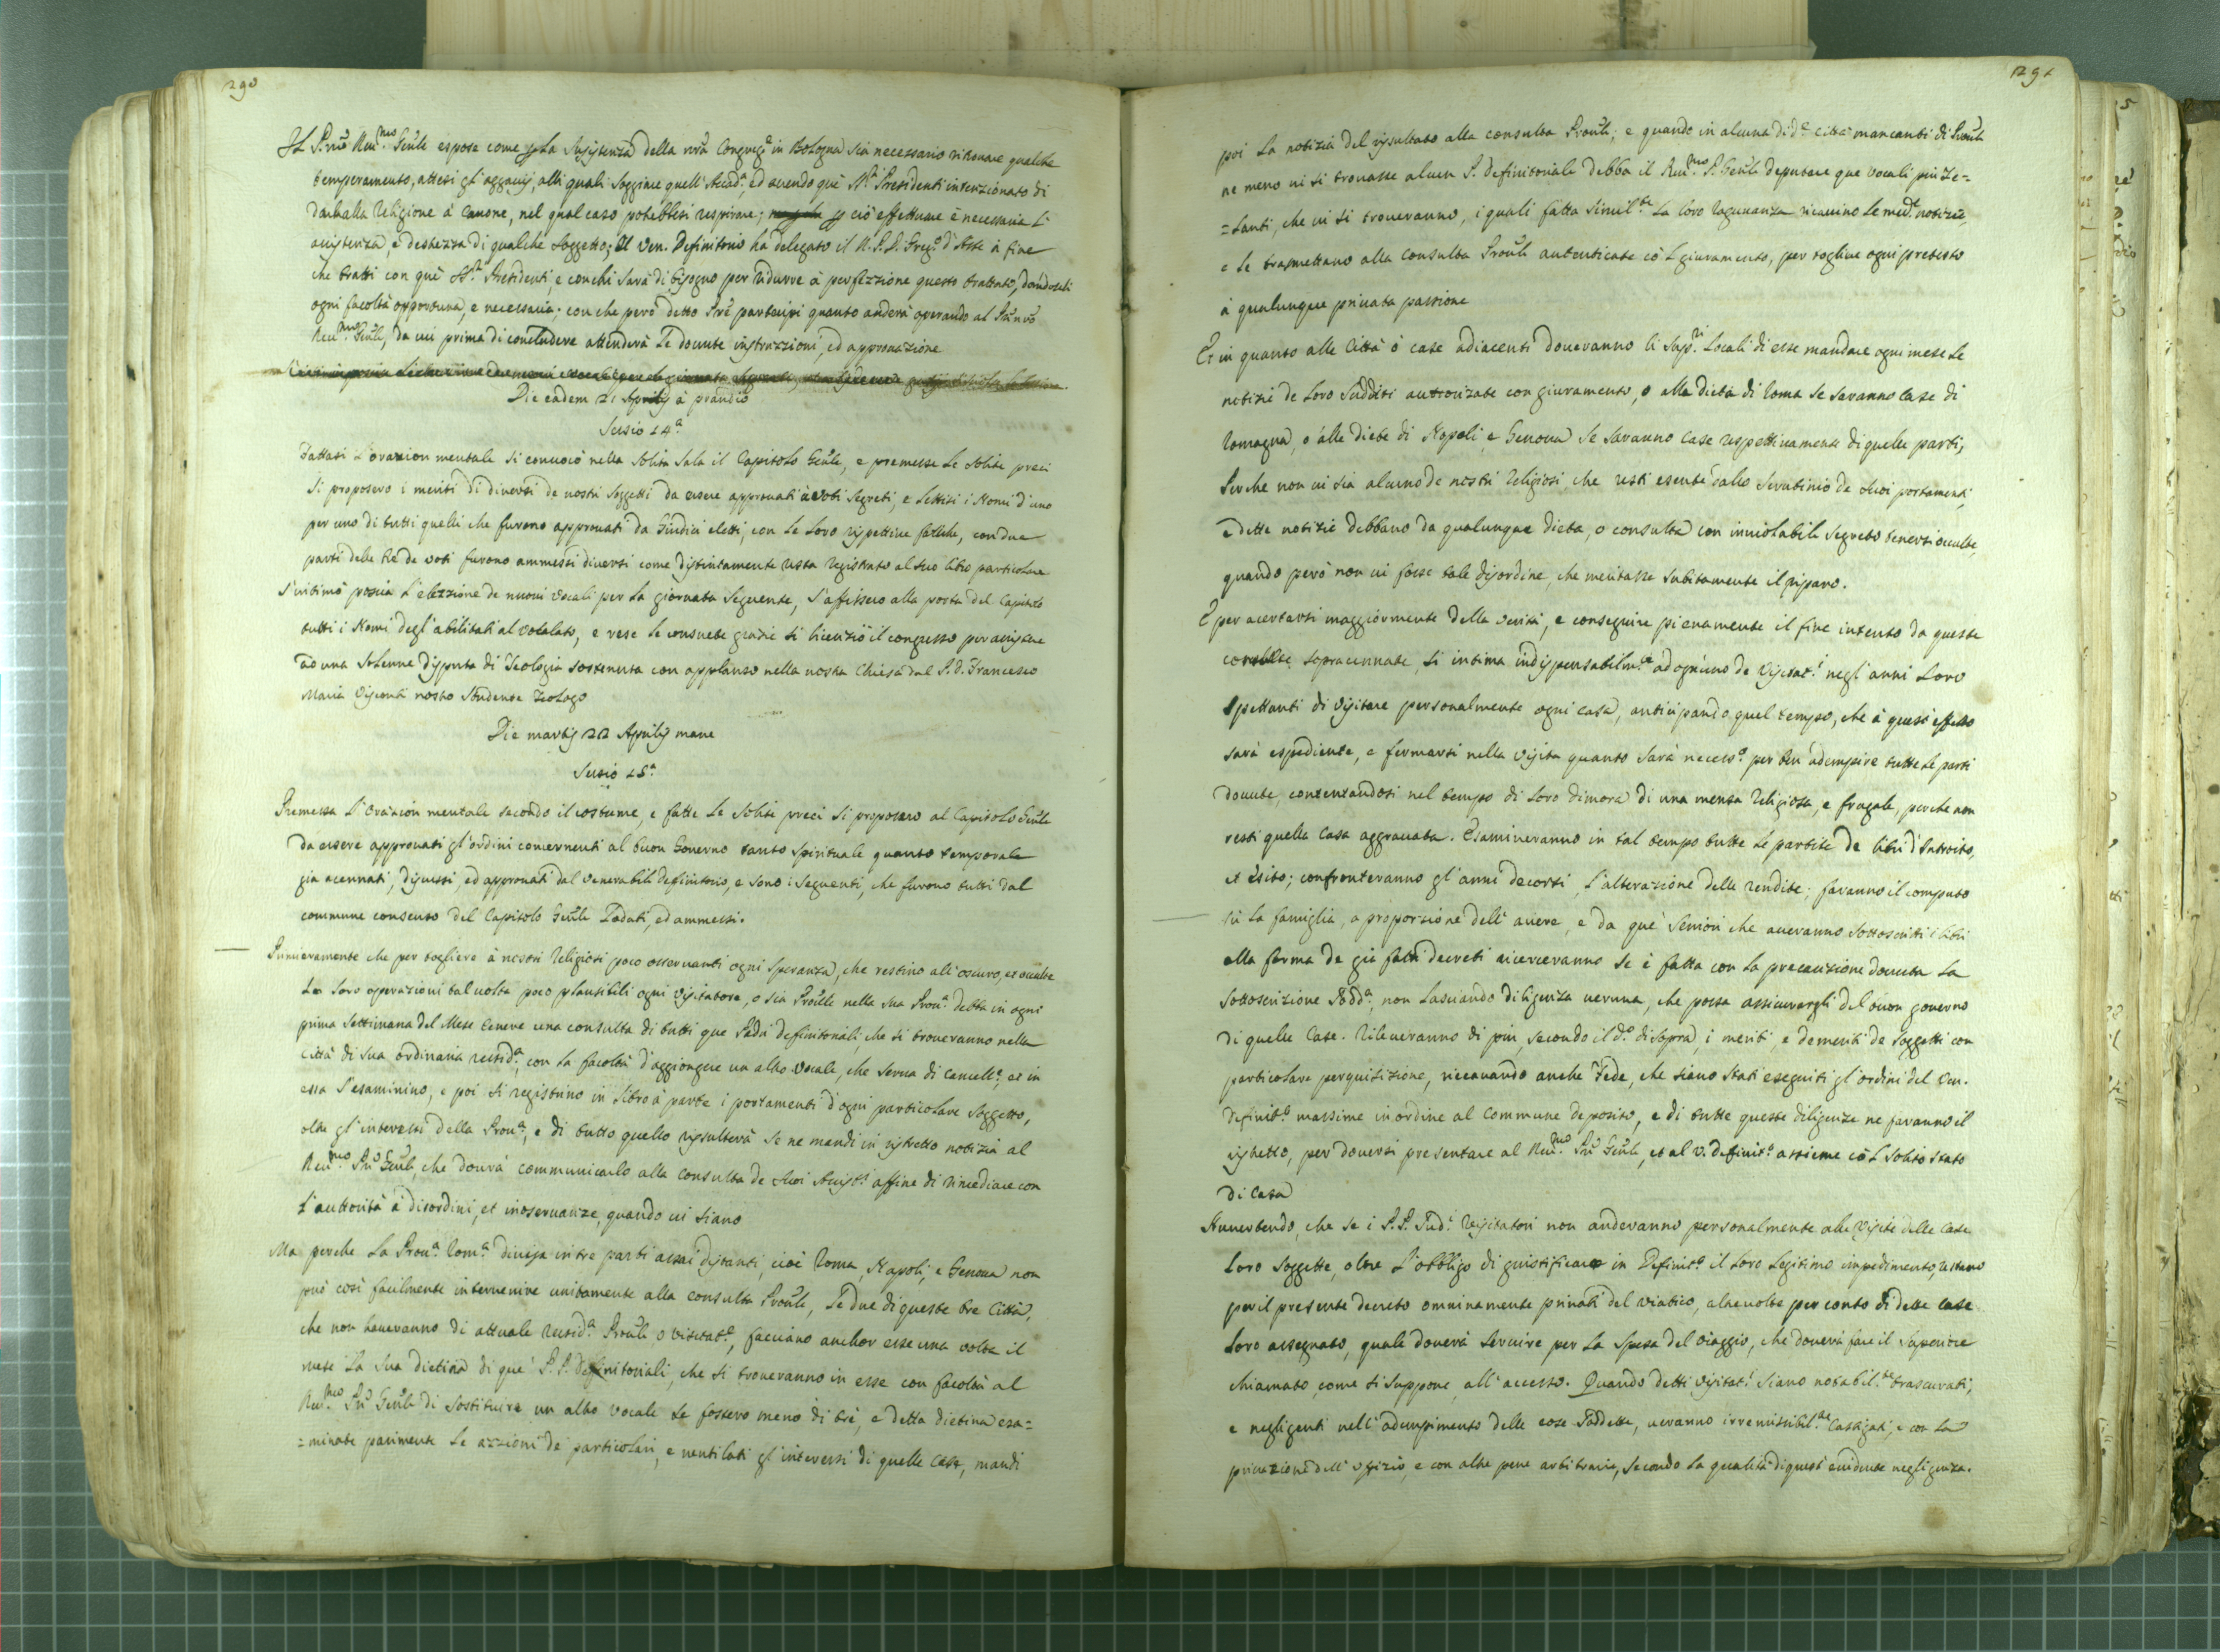 290
Il P.re Rev.mo Gn̄le espose come p̱ la susistenza della nr̄a Congreg.e in Bologna sia necessario ritrovare qualche
temperamento, attesi gl'aggravij, alli quali soggiace quell'Accad.a ed avendo que' SS.ri Presidenti intenzionato di
darla alla Religione à Canone, nel qual caso potrebbesi respirare; p̱ ciò effettuare è necessaria l'
assistenza, e destrezza di qualche soggetto; Il Ven. Definitorio ha delegato il M. P. D. Greg.o d'Aste à fine
che tratti con que' SS.ri Presidenti, e con chi sarà di bisogno per ridurre à perfezzione questo trattato, dandoseli
ogni facoltà opportuna, e necessaria; con che però detto Pr̄e partecipi quanto anderà operando al P.re nr̄o
Rev.mo Gn̄le, da cui prima di concludere attenderà le dovute instruzzioni, ed approvazione
Die eadem 21 Aprilis à prandio
Sessio 14.a
Fattasi l'orazion mentale si convocò nella solita sala il Capitolo Gn̄le, e premesse le solite preci
si proposero i meriti di diversi de nostri soggetti da essere approvati à voti segreti, e lettisi i Nomi d'uno
per uno di tutti quelli che furono approvati da Giudici eletti, con le loro rispettive fatiche, con due
parti delle tre de voti furono ammessi diversi come distintamente resta registrato al suo libro particolare
S'intimò poscia l'elezzione de nuovi Vocali per la giornata seguente, s'affissero alla porta del Capitolo
tutti i Nomi degl'abilitati al Vocalato, e rese le consuete grazie si licenziò il congresso per assistere
ad una solenne disputa di Teologia sostenuta con applauso nella nostra Chiesa dal P. D. Francesco
Maria Visconti nostro Studente Teologo
Die martis 22 Aprilis mane
Sessio 15.a
Premessa l'Orazion mentale secondo il costume, e fatte le solite preci si proposero al Capitolo Gn̄le
da essere approvati gl'ordini concernenti al buon Governo tanto spirituale quanto temporale
gia acennati, discussi, ed approvati dal Venerabile Definitorio, e sono i seguenti, che furono tutti dal
commune consenso del Capitolo Gn̄le lodati, ed ammessi.
Primieramente che per togliere à nostri Religiosi poco osservanti ogni speranza, che restino all'oscuro, et occulte
le loro operazioni tal volta poco plausibili ogni Visitatore, o sia Pro̅ule nella sua Prov.a debba in ogni
prima settimana del Mese tenere una consulta di tutti que Padri definitoriali, che si troveranno nella
Città di sua ordinaria resid.a, con la facoltà d'aggiongere un altro Vocale, che serva di Cancell.e, et in
essa s'esaminino, e poi si registrino in libro à parte i portamenti d'ogni particolare soggetto,
oltre gl'interessi della Prov.a, e di tutto quello risulterà se ne mandi in ristretto notizia al
Rev.mo P̄re Gn̄le, che dovrà communicarlo alla consulta de suoi Assist.i affine di rimediare con
l'auttorità à disordini, et inosservanze, quando vi siano
Ma perche la Prov.a Rom.a divisa in tre parti assai distanti, cioè Roma, Napoli, e Genova non
può così facilmente intervenire unitamente alla consulta Prov̄le, le due di queste tre Città,
che non haveranno di attuale resid.a Prov̄le o visitat.e, facciano anchor esse una volta il
mese la sua dietina di que' P. P. definitoriali, che si troveranno in esse con facoltà al
Rev.mo P̄re Gn̄le di sostituire un altro vocale se fossero meno di trè, e detta dietina esa=
=minate parimente le azzioni de particolari, e ventilati gl'interessi di quelle case, mandi
291
poi la notizia del risultato alla consulta Prov̄le; e quando in alcuna di d.e Città mancanti di Prov̄le
ne meno vi si trovasse alcun P. definitoriale debba il Rev.mo P. Gn̄le deputare que vocali più ze=
=lanti, che vi si troveranno, i quali fatta simil.te la loro ragunanza ricavino le med.e notizie,
e le trasmettano alla consulta Prov̄le autenticate cō l giuramento, per togliere ogni pretesto
à qualunque privata passione
Et in quanto alle Città ò case adiacenti doveranno li Sup.ri locali di esse mandare ogni mese le
notizie de loro sudditi autorizate con giuramento, o alla dieta di Roma se saranno case di
Romagna, o alle diete di Napoli, e Genova se saranno case respettivamente di quelle parti,
perche non vi sia alcuno de nostri Religiosi che resti esente dallo scrutinio de suoi portamenti,
e dette notizie debbano da qualunque dieta, o consulta con inviolabile segreto tenersi occulte,
quando però non vi fosse tale disordine, che meritasse subitamente il riparo.
E per acertarsi maggiormente della verità, e conseguire pienamente il fine intento da queste
consulte sopracennate, si intima indispensabilm.te ad ogn'uno de Visitat.i negl'anni loro
spettanti di visitare personalmente ogni casa, anticipando quel tempo, che à quest'effetto
sarà espediente, e fermarsi nella visita quanto sarà necess.o per ben adempire tutte le parti
dovute, contentandosi nel tempo di loro dimora di una mensa Religiosa, e frugale, perche non
resti quella casa aggravata. Esamineranno in tal tempo tutte le partite de libri d'Introito,
et èsito; confronteranno gl'anni decorsi, l'alterazione delle rendite; faranno il computo
sù la famiglia, a proporzione dell'avere, e da que' Seniori che averanno sottoscritti i libri
alla forma de già fatti decreti ricerceranno se è fatta con la precauzione dovuta la
sottoscrizione sodd.a, non lasciando diligenza veruna, che possa assicurargli del buon governo
di quelle Case. Rileveranno di più, secondo il d.o di sopra, i meriti, e demeriti de soggetti con
particolare perquisizione, riccavando anche fede, che siano stati eseguiti gl'ordini del Ven.
Definit.o massime in ordine al commune deposito, e di tutte queste diligenze ne faranno il
ristretto, per doversi presentare al Rev.mo P̄re Gn̄le, et al V. definit.o assieme cō l solito stato
di Casa
Avvertendo, che se i P. P. Pud.i Visitatori non anderanno personalmente alle Visite delle case
loro soggette, oltre l'obbligo di giustificare in Definit.o il loro legitimo impedimento, restano
per il presente decreto omninamente privati del viatico, altre volte per conto di dette case
loro assegnato, quale doverà servire per la spesa del viaggio, che doverà fare il superiore
chiamato, come si suppone, all'accesso. Quando detti Visitat.i siano notabil.te trascurati,
e negligenti nell'adempimento delle cose soddette, veranno irremissibil.te Castigati, e con la
privazione dell'offizio, e con altre pene arbitrarie, secondo la qualità di quest'evidente negligenza.